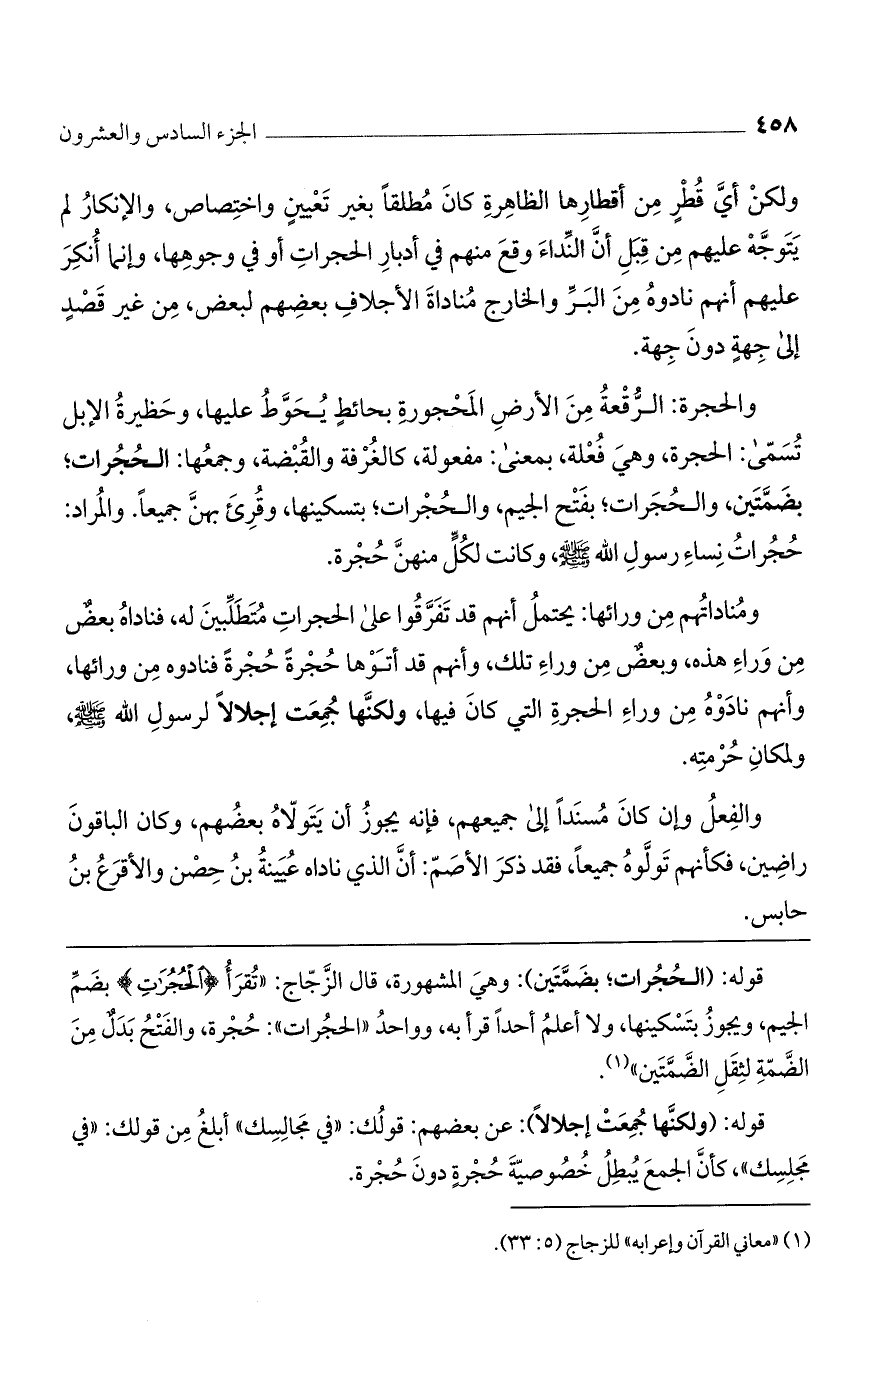 ٤٥٨ ــــــــــــــــــــ الجزء السادس والعشرون
ولكنْ أيَّ قُطْرٍ مِن أقطارِها الظاهِرةِ كانَ مُطلقاً بغير تَعْيينٍ واختِصاص، والإنكارُ لم
يَتَوجَّهْ عليهم مِن قِبَلِ أنَّ النِّداءَ وقعَ منهم في أدبارِ الحجراتِ أو في وجوهِها، وإنما أُنكِرَ
عليهم أنهم نادوهُ مِنَ البَـرِّ والخارج مُناداةَ الأجلافِ بعضِهم لبعض، مِن غير قَصْدٍ
إلىٰ جِهةٍ دونَ جِهة.
والحجرة: الـرُّقْعةُ مِنَ الأرضِ المَحْجورةِ بحائطٍ يُـحَوَّطُ عليها، وحَظيرةُ الإبل
تُسَمّىٰ: الحجرة، وهيَ فُعْلة، بمعنىٰ: مفعولة، كالغُرْفة والقُبْضة، وجمعُها: الـحُجُرات؛
بضَمَّتَين، والـحُجَرات؛ بفَتْح الجيم، والـحُجْرات؛ بتسكينها، وقُرِئَ بهنَّ جميعاً. والمُراد:
حُجُراتُ نِساءِ رسولِ الله ﷺ، وكانت لكُلٍّ منهنَّ حُجْرة.
ومُناداتُهم مِن ورائها: يحتملُ أنهم قد تَفَرَّقُوا علىٰ الحجراتِ مُتَطَلِّبينَ له، فناداهُ بعضٌ
مِن وَراءِ هذه، وبعضٌ مِن وراءِ تلك، وأنهم قد أتـَوْها حُجْرةً حُجْرةً فنادوه مِن ورائها،
وأنهم نادَوْهُ مِن وراءِ الحجرةِ التي كانَ فيها، ولكنَّها جُمِعَت إجلالاً لرسولِ الله ﷺ،
ولمكانِ حُرْمتِه.
والفِعلُ وإن كانَ مُسنَداً إلىٰ جميعهم، فإنه يجوزُ أن يَتَولّاهُ بعضُهم، وكان الباقونَ
راضِين، فكأنهم تَولَّوهُ جميعاً، فقد ذكرَ الأصَمّ: أنَّ الذي ناداه عُيَينةُ بنُ حِصْن والأقرَعُ بنُ
حابس.
قوله: (الـحُجُرات؛ بضَمَّتَين): وهيَ المشهورة، قال الزَّجّاج: «تُقرَأُ ﴿ٱلْحُجُرَٰتِ﴾ بضَمِّ
الجيم، ويجوزُ بتَسْكينها، ولا أعلمُ أحداً قرأ به، وواحدُ «الحجُرات»: حُجْرة، والفَتْحُ بَدَلٌ مِنَ
الضَّمّةِ لثِقَلِ الضَّمَّتَين»(١).
قوله: (ولكنَّها جُمِعَتْ إجلالاً): عن بعضهم: قولُك: «في مَجالِسِك» أبلغُ مِن قولك: «في
مَجلِسِك»، كأنَّ الجمعَ يُبطِلُ خُصُوصيّةَ حُجْرةٍ دونَ حُجْرة.
(١) «معاني القرآن وإعرابه» للزجاج (٥: ٣٣).